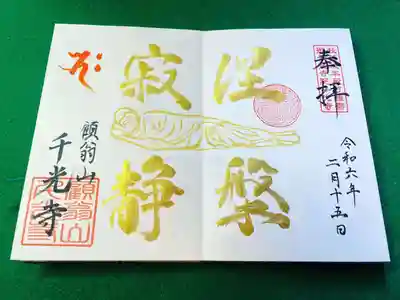 奉拝
令和六年
二月十五日
涅槃
寂静
顧翁山
千光寺